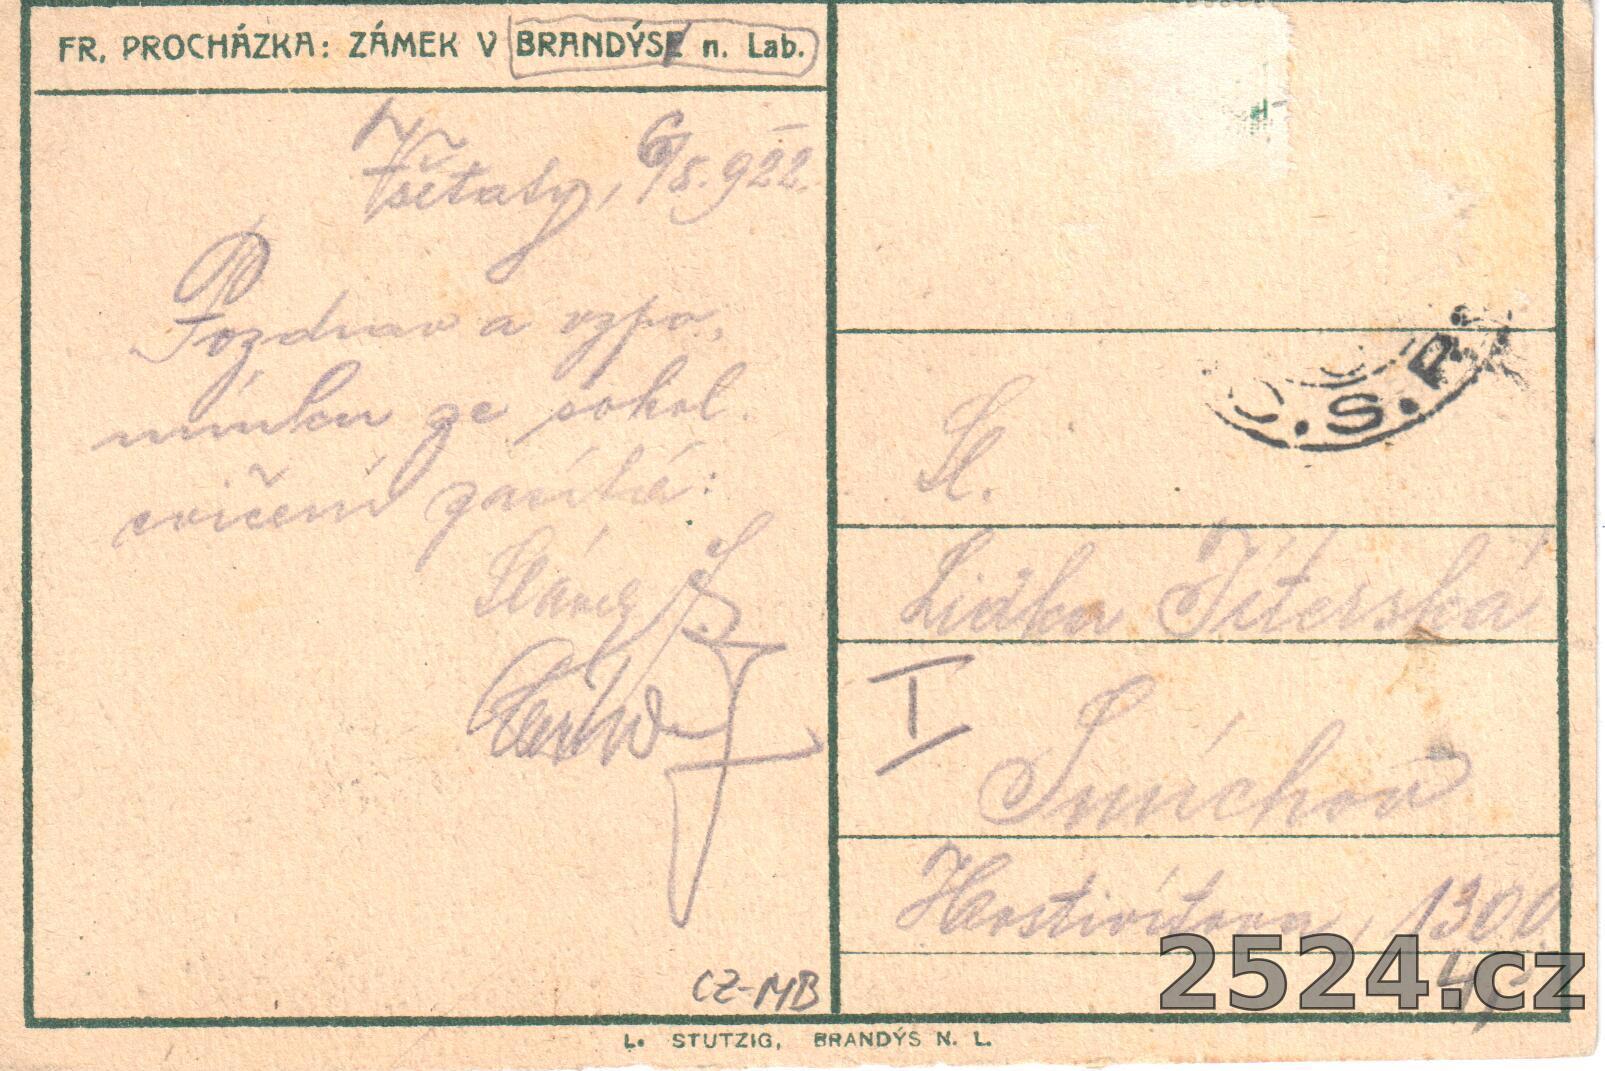 FR. PROCHÁZKA: ZÁMEK V BRANDÝSE n. Lab.
Všetaty, 6/8. 922.
Pozdrav a vzpo-
mínku ze sokol.
cvičení zasílá:
Sl.
Lidka Jíterská
I
Smíchov
Hostivítova, 1300
4,-
CZ-MB
L. STUTZIG, BRANDÝS N. L.
.S.R.
2524.cz